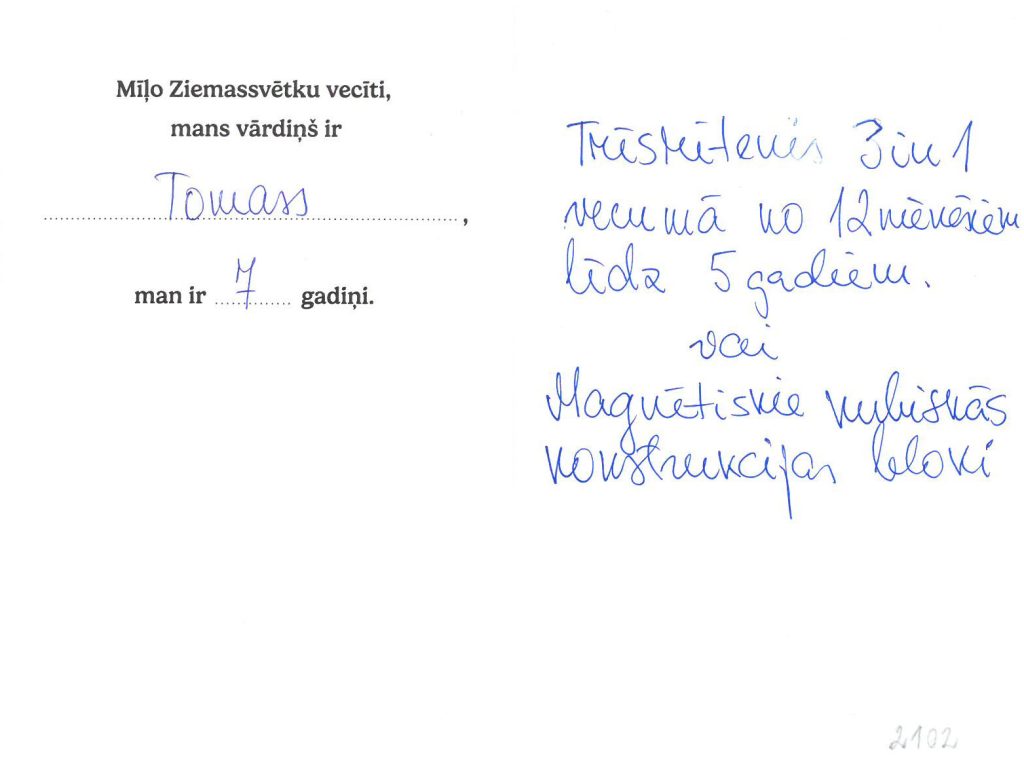 Mīļo Ziemassvētku vecīti,
mans vārdiņš ir
Tomass,
man ir 7 gadiņi.
Trīsritenis 3 in 1
vecumā no 12 mēnešiem
līdz 5 gadiem.
vai
Magnētiskie kubiskās
konstrukcijas bloki
2102